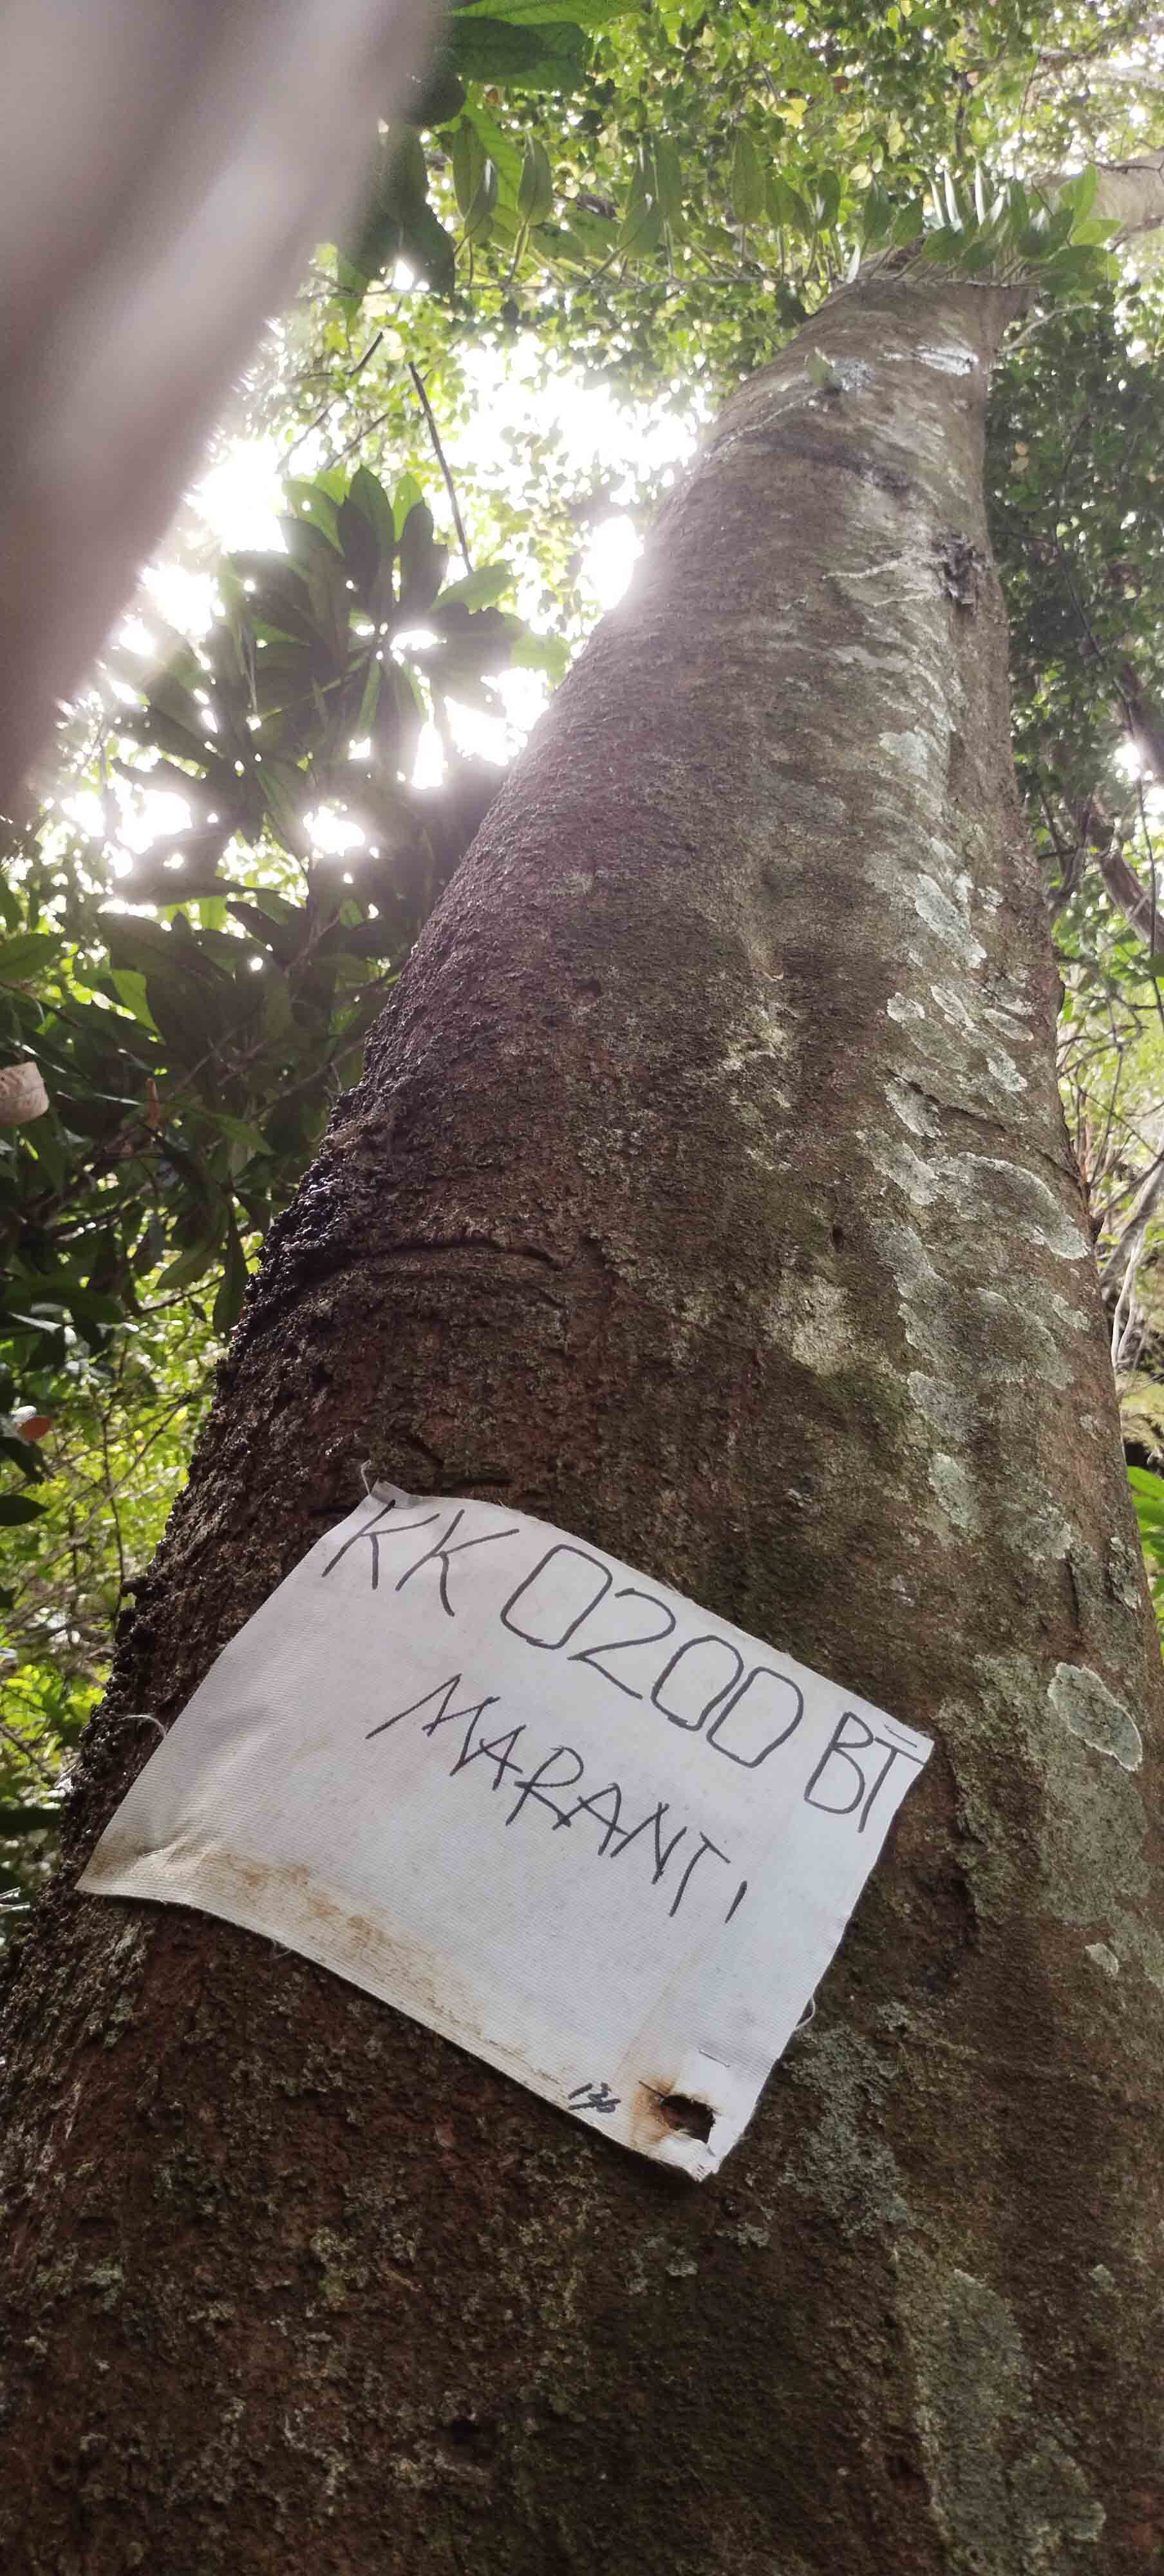 KK 0200 BT
MARANTI